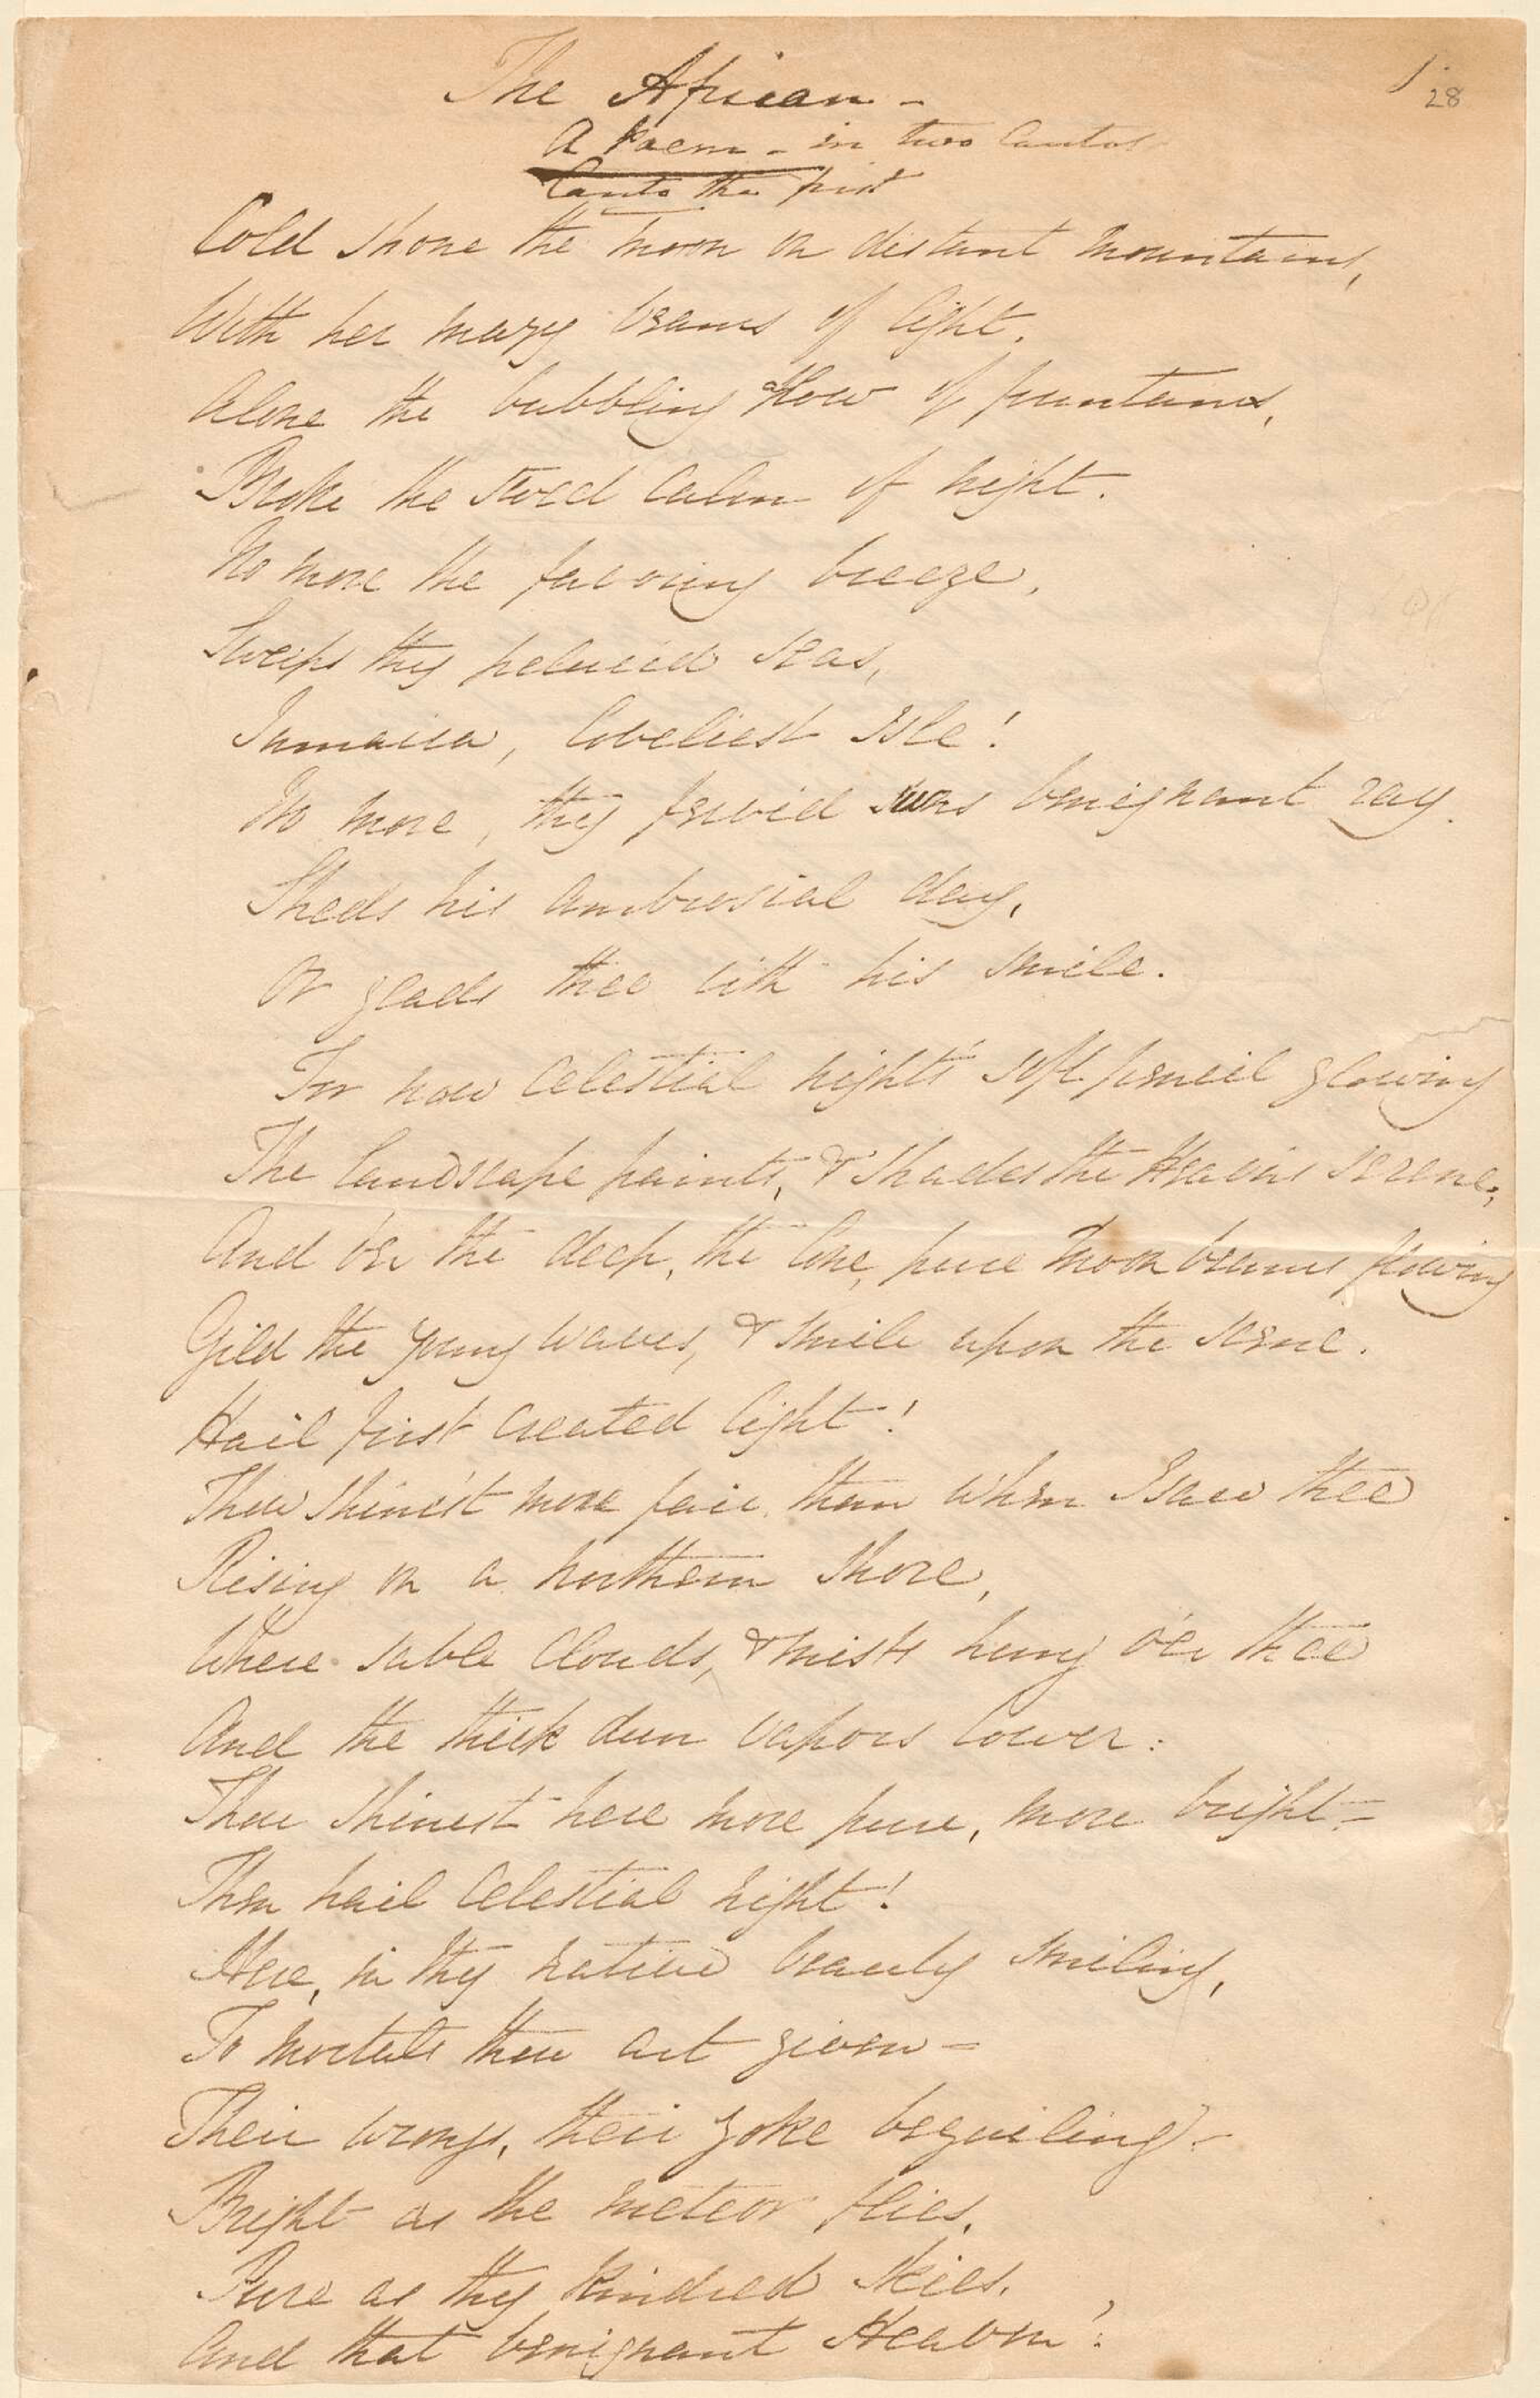 The African -
28
A Poem - in two Cantos
Canto the first
Cold shone the moon on distant mountains,
With her many beams of light.
Alone the bubbling flow of fountains,
Broke the calm of night.
No more the favoring breeze,
Sweeps thy pelucid seas,
Jamaica, loveliest Isle!
No more, thy fervid suns benignant ray.
Sheds his ambrosial day,
Or glads thee with his smile.
For now celestial night's soft pencil glowing
The landscape paints, & shades the Heavens serene,
And o'er the deep, the lone, pure moon beams flowing
Gild the young waves, & smile upon the scene.
Hail first created light!
Thou shine'st more fair, than when I saw thee
Rising on a northern shore,
Where sable clouds, & mists hung o'er thee
And the thick dun vapors lower:
Thou shinest here more pure, more bright -
Then hail celestial night!
Here, in thy native beauty smiling,
To mortals thou art given -
Their wrongs, their yoke beguiling -
Bright as the meteor flies,
Pure as thy kindred skies,
And that benignant Heaven!